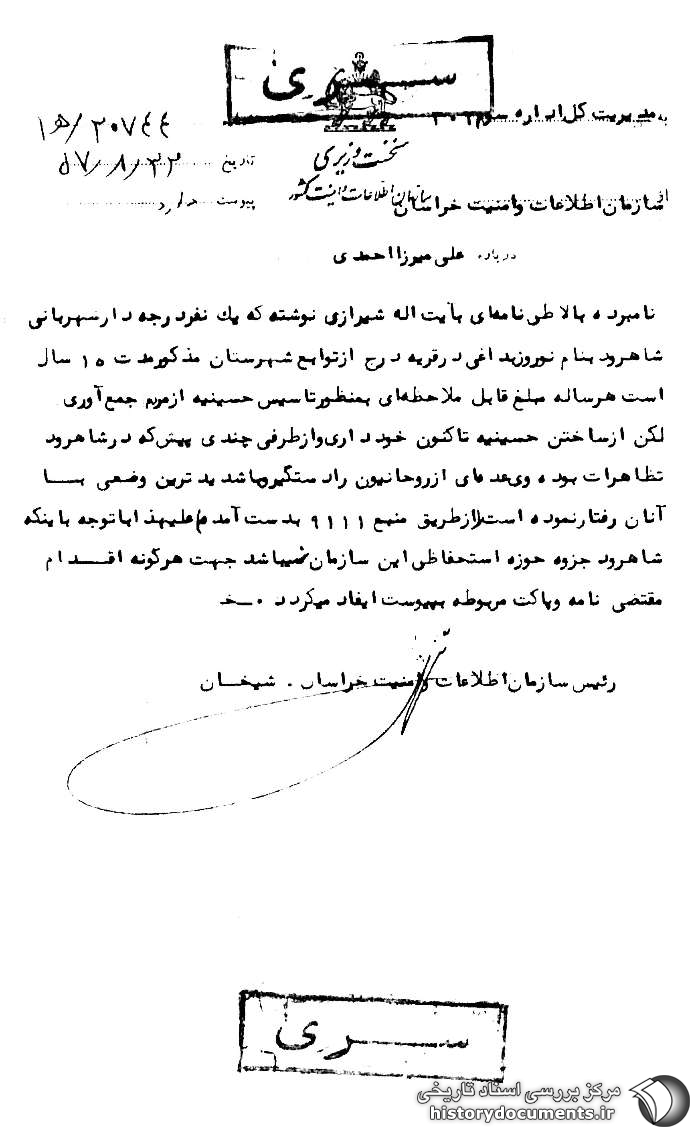 سری
به مدیریت کل اداره سوم ۳۰۲
۲۰۷۴۴/ ۱ ه‍
نخست وزیری
تاریخ ۵۷/۸/۲۲
سازمان اطلاعات و امنیت کشور
از سازمان اطلاعات وامنیت خراسان
پیوست دارد
درباره علی میرزا احمدی
نامبرده بالا طی نامه‌ای بآیت اله شیرازی نوشته که یك نفر درجه دار شهربانی
شاهرود بنام نوروز بداغی در قریه درج ازتوابع شهرستان مذکور مدت ۱۵ سال
است هرساله مبلغ قابل ملاحظه‌ای بمنظور تاسیس حسینیه از مردم جمع آوری
لکن ازساختن حسینیه تاکنون خود داری وازطرفی چندی پیش که در شاهرود
تظاهرات بوده وی عده‌ای ازروحانیون را دستگیر وباشدید ترین وضعی بسا
آنان رفتار نموده است (از طریق منبع ۹۱۱۱ بدست آمده) علیهذا باتوجه باینکه
شاهرود جزوه حوزه استحفاظی این سازمان نمیباشد جهت هرگونه اقدام
مقتضی نامه وپاکت مربوطه بپیوست ایفاد میگردد ۰ خ
رئیس سازمان اطلاعات وامنیت خراسان . شیخان
سری
مرکز بررسی اسناد تاریخی
historydocuments.ir